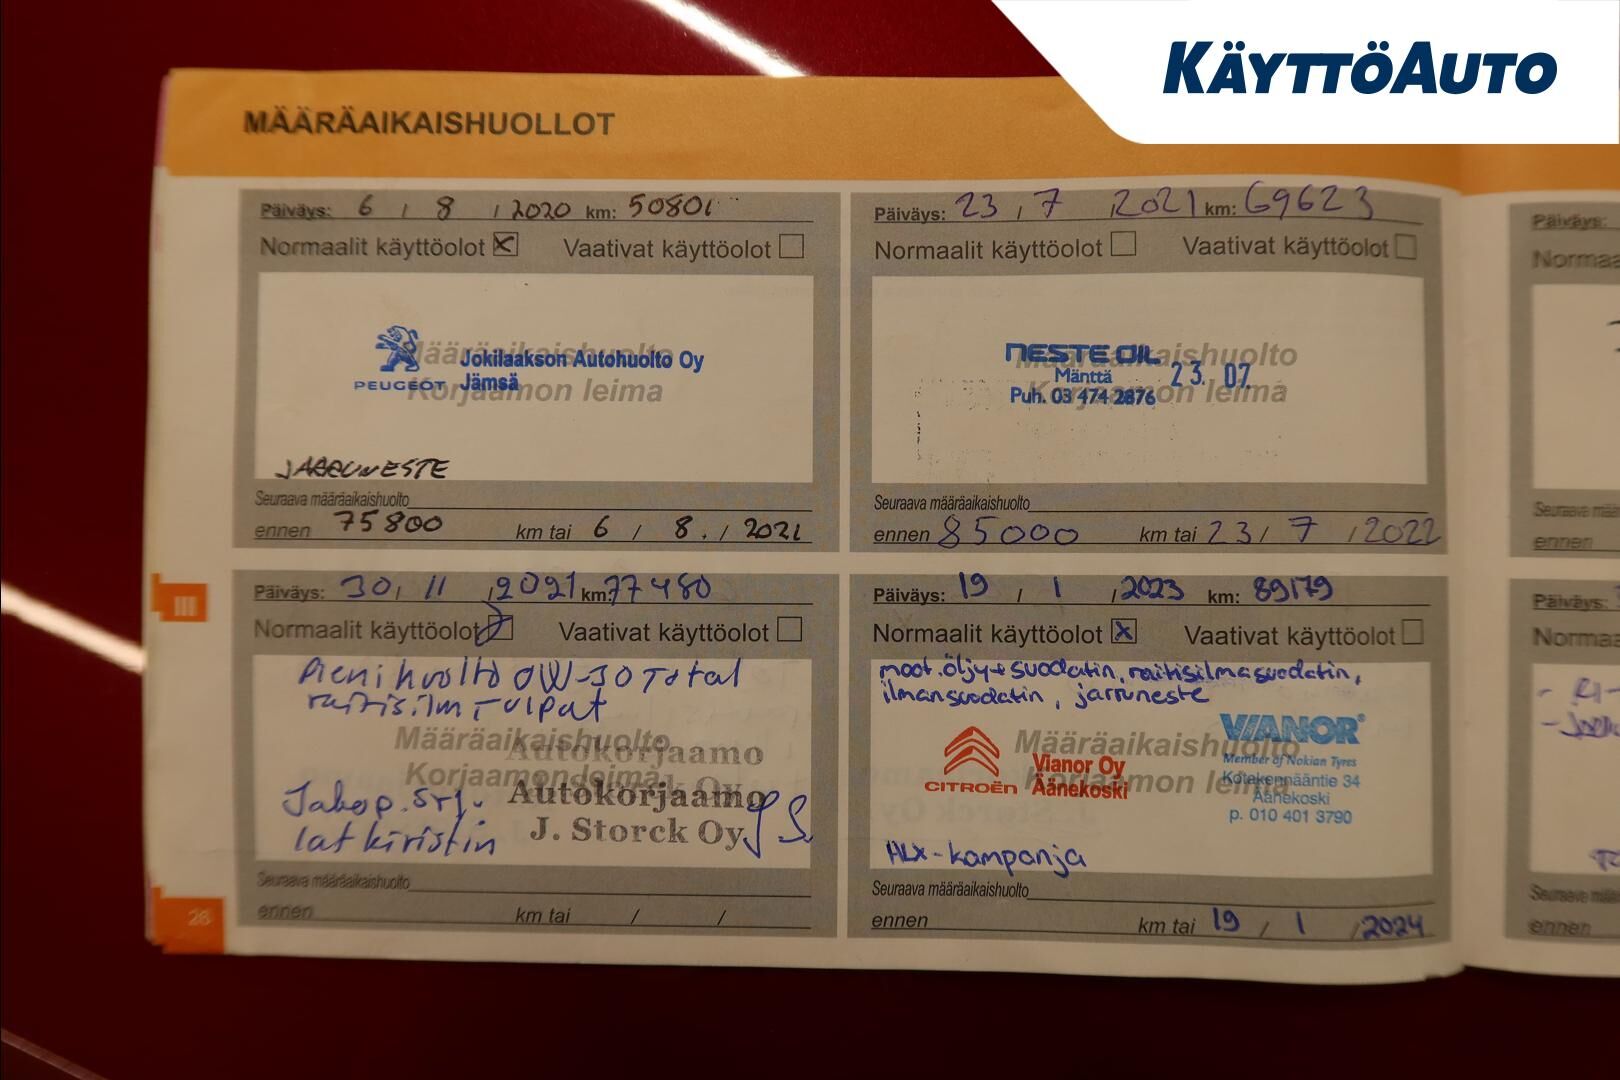 KÄYTTÖAUTO
MÄÄRÄAIKAISHUOLLOT
Päiväys: 6 / 8 / 2020 km: 50801
Normaalit käyttöolot Vaativat käyttöolot
Määräaikaishuolto
Korjaamon leima
PEUGEOT Jokilaakson Autohuolto Oy
Jämsä
JARRUNESTE
Seuraava määräaikaishuolto
ennen 75800 km tai 6 / 8. / 2021
Päiväys: 23 / 7 / 2021 km: 69623
Normaalit käyttöolot Vaativat käyttöolot
Määräaikaishuolto
Korjaamon leima
NESTE OIL
Mänttä 23. 07.
Puh. 03 474 2876
Seuraava määräaikaishuolto
ennen 85000 km tai 23 / 7 / 2022
III
Päiväys: 30 / 11 / 2021 km: 77480
Normaalit käyttöolot Vaativat käyttöolot
Pieni huolto 0W-30 Total
raitisilm tulpat
Määräaikaishuolto
Korjaamon leima
Autokorjaamo
Autokorjaamo
J. Storck Oy JS
Jakop. srj.
lat kiristin
Seuraava määräaikaishuolto
ennen km tai / /
Päiväys: 19 / 1 / 2023 km: 89179
Normaalit käyttöolot Vaativat käyttöolot
moot.öljy+suodatin, raitisilmasuodatin,
ilmansuodatin, jarruneste
Määräaikaishuolto
Korjaamon leima
CITROËN Vianor Oy
Äänekoski
VIANOR®
Member of Nokian Tyres
Kotakennääntie 34
Äänekoski
p. 010 401 3790
HLX-kampanja
Seuraava määräaikaishuolto
ennen km tai 19 / 1 / 2024
26
Päiväys:
Normaa
ennen
Päiväys:
Normaa
ennen